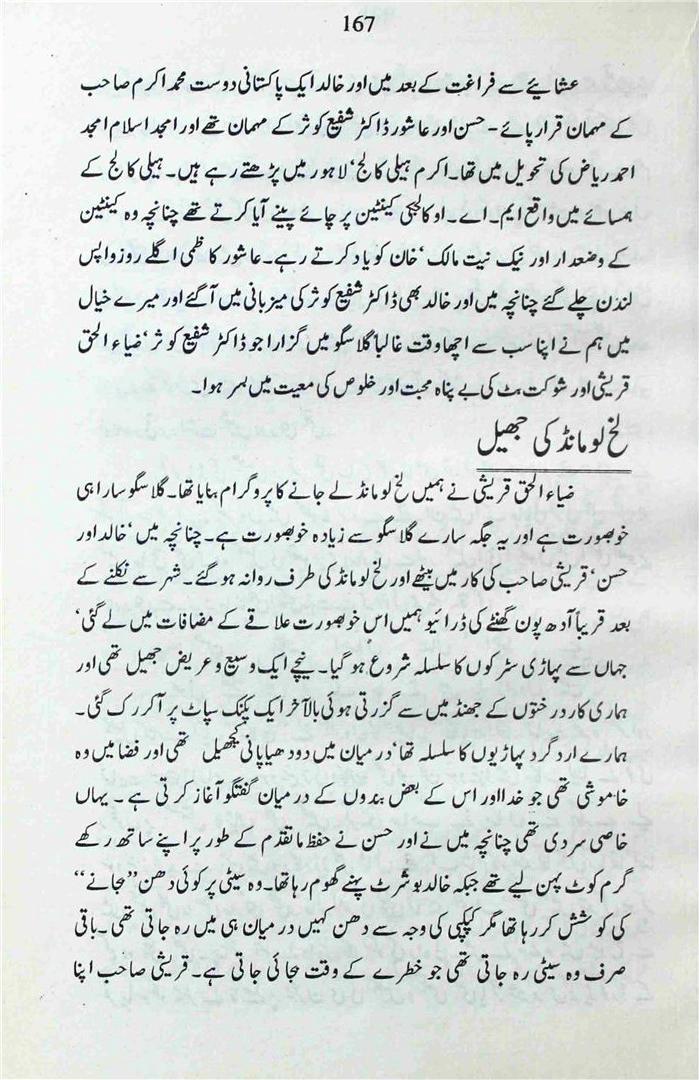 167
عشائیے سے فراغت کے بعد میں اور خالد ایک پاکستانی دوست محمد اکرم صاحب
کے مہمان قرار پائے - حسن اور عاشور ڈاکٹر شفیع کوثر کے مہمان تھے اور امجد اسلام امجد
احمد ریاض کی تحویل میں تھا۔ اکرم ہیلی کالج‘ لاہور میں پڑھتے رہے ہیں۔ ہیلی کالج کے
ہمسائے میں واقع ایم۔ اے۔ او کالج کی کینٹین پر چائے پینے آیا کرتے تھے چنانچہ وہ کینٹین
کے وضعدار اور نیک نیت مالک‘ خان کو یاد کرتے رہے۔ عاشور کاظمی اگلے روز واپس
لندن چلے گئے چنانچہ میں اور خالد بھی ڈاکٹر شفیع کوثر کی میزبانی میں آگئے اور میرے خیال
میں ہم نے اپنا سب سے اچھا وقت غالباً گلاسگو میں گزارا جو ڈاکٹر شفیع کوثر‘ ضیاء الحق
قریشی اور شوکت بٹ کی بے پناہ محبت اور خلوص کی معیت میں بسر ہوا۔
لخ لومانڈ کی جھیل
ضیاء الحق قریشی نے ہمیں لخ لومانڈ لے جانے کا پروگرام بنایا تھا۔ گلاسگو سارا ہی
خوبصورت ہے اور یہ جگہ سارے گلاسگو سے زیادہ خوبصورت ہے۔ چنانچہ میں‘ خالد اور
حسن‘ قریشی صاحب کی کار میں بیٹھے اور لخ لومانڈ کی طرف روانہ ہو گئے۔ شہر سے نکلنے کے
بعد قریباً آدھ پون گھنٹے کی ڈرائیو ہمیں اس خوبصورت علاقے کے مضافات میں لے گئی‘
جہاں سے پہاڑی سڑکوں کا سلسلہ شروع ہو گیا۔ نیچے ایک وسیع و عریض جھیل تھی اور
ہماری کار درختوں کے جھنڈ میں سے گزرتی ہوئی بالآخر ایک پکنک سپاٹ پر آکر رک گئی۔
ہمارے اردگرد پہاڑیوں کا سلسلہ تھا‘ درمیان میں دودھیا پانی کی جھیل تھی اور فضا میں وہ
خاموشی تھی جو خدا اور اس کے بعض بندوں کے درمیان گفتگو آغاز کرتی ہے۔ یہاں
خاصی سردی تھی چنانچہ میں نے اور حسن نے حفظ ماتقدم کے طور پر اپنے ساتھ رکھے
گرم کوٹ پہن لیے تھے جبکہ خالد بوشرٹ پہنے گھوم رہا تھا۔ وہ سیٹی پر کوئی دھن ’’بجانے‘‘
کی کوشش کر رہا تھا مگر کپکپی کی وجہ سے دھن کہیں درمیان ہی میں رہ جاتی تھی۔ باقی
صرف وہ سیٹی رہ جاتی تھی جو خطرے کے وقت بجائی جاتی ہے۔ قریشی صاحب اپنا